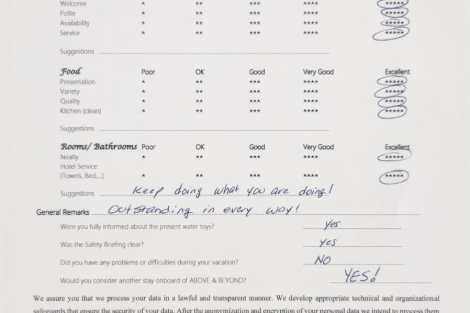 Welcome * ** *** **** *****
Polite * ** *** **** *****
Availability * ** *** **** *****
Service * ** *** **** *****
Suggestions
Food Poor OK Good Very Good Excellent
Presentation * ** *** **** *****
Variety * ** *** **** *****
Quality * ** *** **** *****
Kitchen (clean) * ** *** **** *****
Suggestions
Rooms/ Bathrooms Poor OK Good Very Good Excellent
Neatly * ** *** **** *****
Hotel Service
(Towels, Bed,...) * ** *** **** *****
Suggestions Keep doing what you are doing!
General Remarks Outstanding in every way!
Were you fully informed about the present water toys? yes
Was the Safety Briefing clear? yes
Did you have any problems or difficulties during your vacation? NO
Would you consider another stay onboard of ABOVE & BEYOND? YES!
We assure you that we process your data in a lawful and transparent manner. We develop appropriate technical and organizational
safeguards that ensure the security of your data. After the anonymization and encryption of your personal data we intend to process them